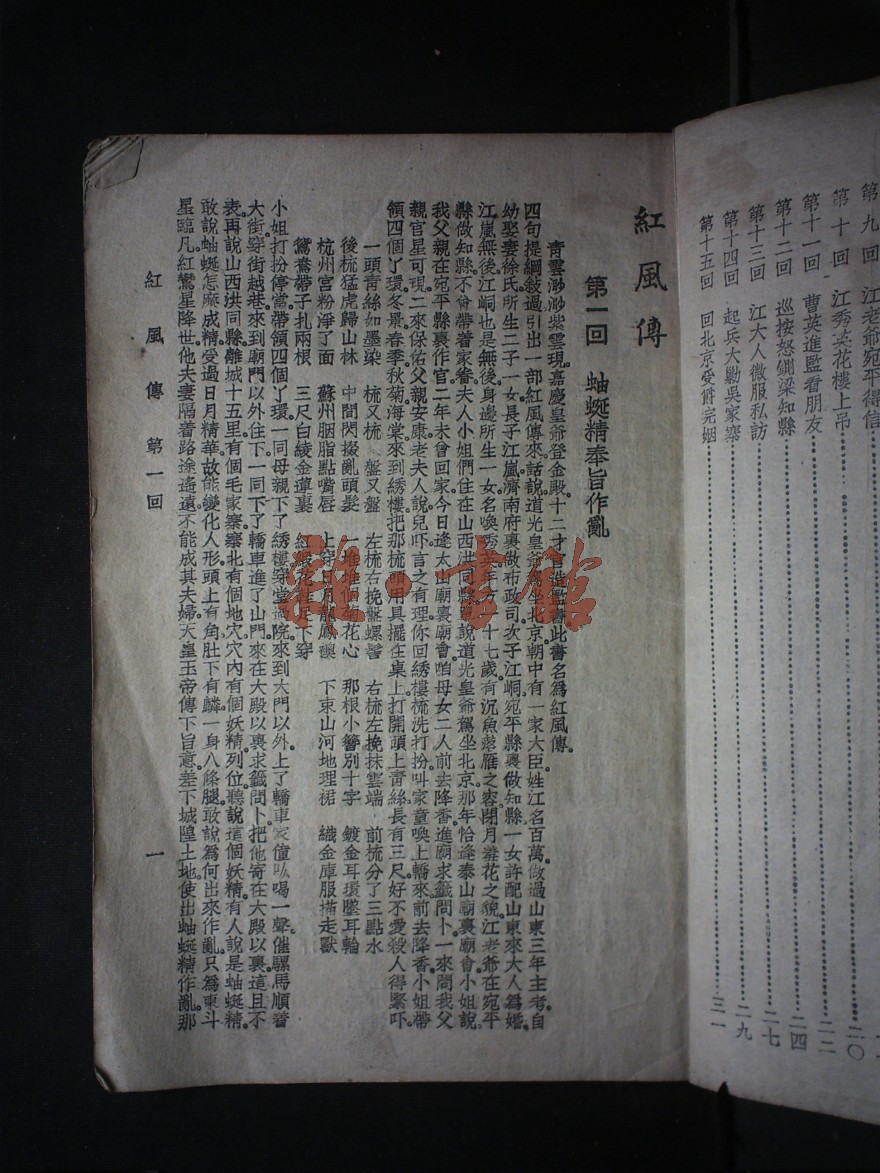 第九回 江老爺宛平得信
第十回 江秀英花樓上吊 二〇
第十一回 曹英進監看朋友 二二
第十二回 巡按怒鍘梁知縣 二四
第十三回 江大人微服私訪 二七
第十四回 起兵大勦吳家寨 二九
第十五回 回北京受爵完姻 三一
紅風傳
第一回 蚰蜒精奉旨作亂
青雲渺渺紫雲現。嘉慶皇爺登金殿。十二才官進鑑書。此書名爲紅風傳。
四句提綱敍過引出一部紅風傳來。話說道光皇爺駕坐北京。朝中有一家大臣。姓江名百萬。做過山東三年主考。自
幼娶妻徐氏。所生二子一女。長子江嵐。濟南府裏做布政司。次子江峒。宛平縣裏做知縣。一女許配山東來大人爲婚。
江嵐無後。江峒也是無後。身邊所生一女。名喚秀英。年方一十七歲。有沉魚落雁之容。閉月羞花之貌。江老爺在宛平
縣做知縣。不曾帶着家眷。夫人小姐們住在山西洪同縣。單說道光皇爺駕坐北京。那年恰逢泰山廟裏廟會。小姐說。
我父親在宛平縣裏作官。二年未曾回家。今日逢太山廟裏廟會。咱母女二人前去降香。進廟求籤問卜。一來問我父
親官星可現。二來保佑父親安康。老夫人說。兒吓。言之有理。你回綉樓梳洗打扮。叫家童喚上轎來。前去降香。小姐帶
領四個丫環。冬景春季秋菊海棠。來到綉樓。把那梳頭用具。擺在桌上。打開頭上青絲。長有三尺。好不愛殺人得緊吓。
一頭青絲如墨染 梳又梳 盤又盤 左梳右挽盤螺髻 右梳左挽抹雲端 前梳分了三點水
後梳猛虎歸山林 中間閃掇亂頭髮 一堆堆個菊花心 那根小簪別十字 鍍金耳環墜耳輪
杭州宮粉淨了面 蘇州胭脂點嘴唇 上穿日月龍鳳襖 下束山河地理裙 織金庫服描走獸
鴛鴦帶子扎兩根 三尺白綾金蓮裹 紅緞花鞋足下穿
小姐打扮停當。帶領四個丫環。一同母親下了綉樓。穿堂過院。來到大門以外。上了轎車。家僮吆喝一聲。催騾馬順着
大街。穿街越巷。來到廟門以外住下。一同下了轎車。進了山門。來在大殿以裏。求籤問卜。把他寄在大殿以裏。這且不
表。再說山西洪同縣。離城十五里。有個毛家寨。寨北有個地穴。穴內有個妖精。列位。聽說這個妖精。有人說是蚰蜒精。
敢說蚰蜒怎麼成精。受過日月精華。故能變化人形。頭上有角。肚下有鱗。一身八條腿。敢說爲何出來作亂。只爲東斗
星臨凡。紅鸞星降世。他夫妻隔着路途遙遠。不能成其夫婦。天皇玉帝傳下旨意。差下城隍土地。使出蚰蜒精作亂。那
紅風傳 第一回 一